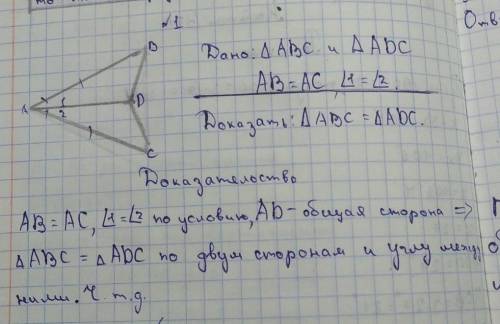 №1
Отв
Дано: △ABC и △ADC
AB=AC ∠1=∠2.
Доказать: △ABC = △ADC.
B
A 1 D
2
C
Доказателоство
AB=AC, ∠1=∠2 по условию, AD-общая сторона =>
△ABC = △ADC по двум сторонам и углу между
ними. Ч.т.д.